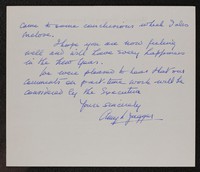 came to some conclusions which I also
enclose.
I hope you are now feeling
well and will have every happiness
in the New Year.
We were pleased to hear that our
comments on part-time work will be
considered by the Executive
Yours sincerely